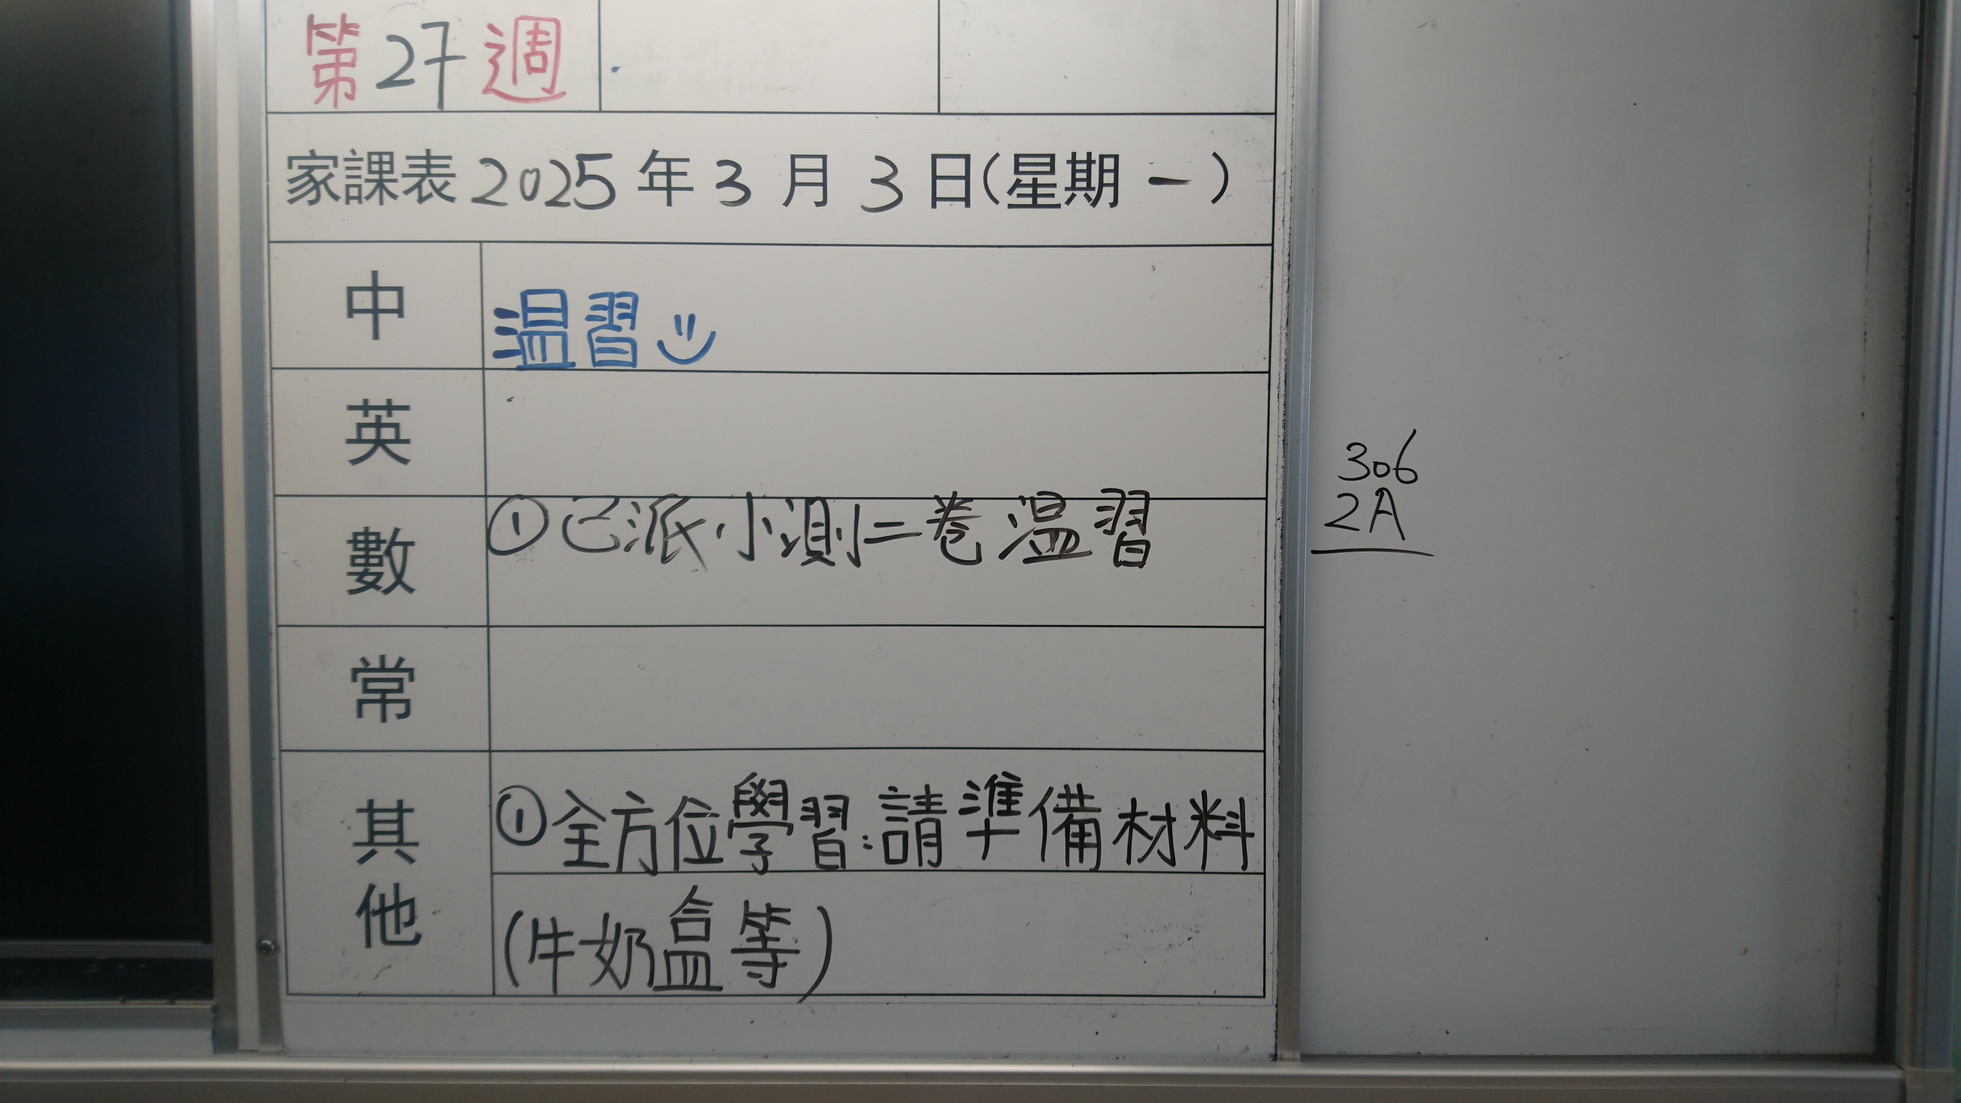 第27週
家課表2025年3月3日(星期一)
中
温習
英
數
①已派小測二卷温習
常
其他
①全方位學習:請準備材料
(牛奶盒等)
306
2A